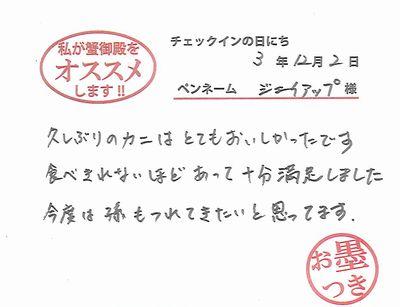 私が蟹御殿を
オススメ
します!!
チェックインの日にち
3年12月2日
ペンネーム ジェイアップ様
久しぶりのカニはとてもおいしかったです
食べきれないほどあって十分満足しました
今度は孫もつれてきたいと思ってます.
お墨
つき